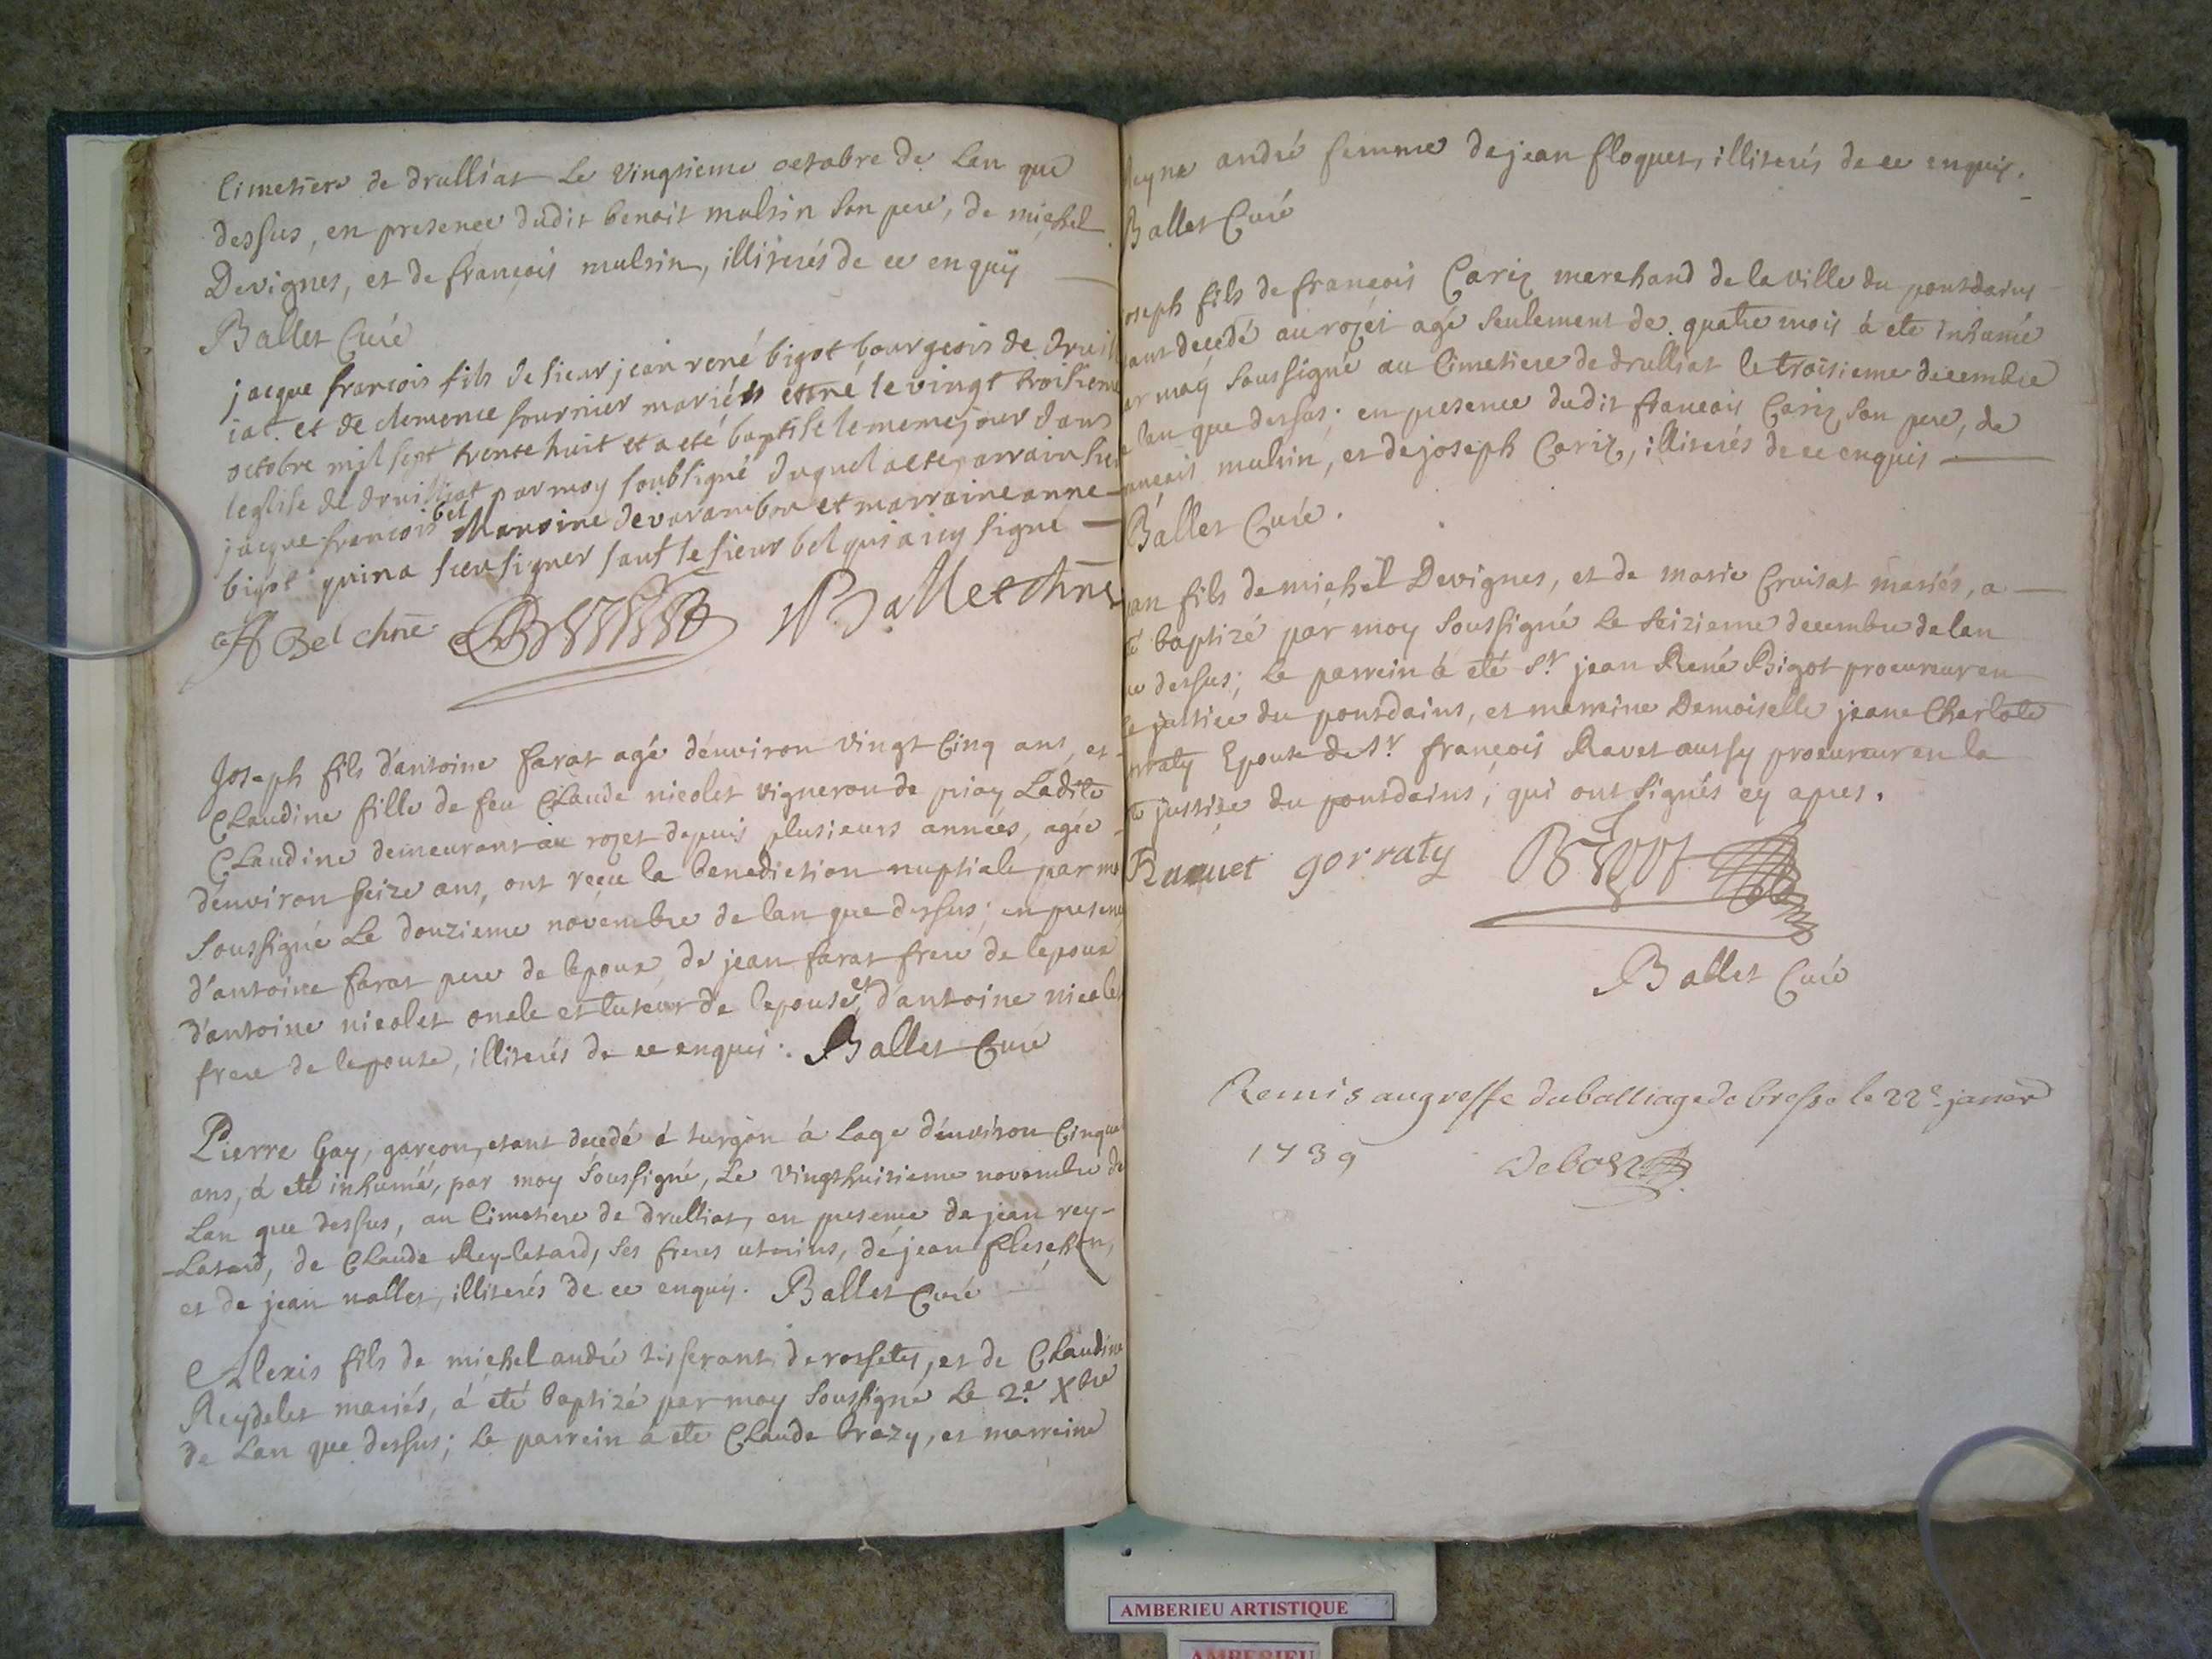 Cimetiere de drulliat Le Vingtieme octobre de Lan que
dessus, en presence dudit benoit multin son pere, de michel
Devignes, et de françois multin, illiterés de ce enquij
Ballet Curé
jacque françois fils de sieur jean rené bigot bourgeois de druil
iat. et de clemence fournier mariés et né le vingt troisieme
octobre mil sept trente huit et a eté baptisé le meme jour dans
leglise de druilliat par moy soubsigné duquel acte parrain sieur
jacque françois bel de varambon et marraine anne
bigot qui n'a sceu signer sauf le sieur bel qui a icy signé
Bel chne Ballet chne
Joseph fils d'antoine farat agé d'environ Vingt Cinq ans, et
CLaudine fille de feu CLaude nicolet vigneron de priay Ladite
CLaudine demeurant au rozet depuis plusieurs années, agée
d'environ seize ans, ont reçu la benediction nuptiale par mo
Soussigné Le douzieme novembre de lan que dessus; en presence
d'antoine farat pere de lepoux de jean farat frere de lepoux
d'antoine nicolet oncle et tuteur de lepouse, et d'antoine nicolet
frere de lepouse, illiterés de ce enquis. Ballet Curé
Pierre Gay, garçon, etant decedé à turgon à Lage d'environ Cinqu
ans, à eté inhumé, par moy Soussigné, Le Vingthuitieme novembre de
Lan que dessus, au Cimetiere de drulliat, en presence de jean rey-
-Letard, de CLaude Rey-letard, ses freres uterins, de jean fléchon,
et de jean nallet, illiterés de ce enquij. Ballet Curé
Alexis fils de michel andré tisserant de rossetes, et de CLaudine
Reydelet mariés, à eté baptizé par moy Soussigné Le 2.e Xbre
de Lan que dessus; Le parrein à eté CLaude brazy, et marreine
reyne andré femme de jean floquet, illiterés de ce enquis.
Ballet Curé
joseph fils de françois Cariz marchand de la ville du pontdains
ant decedé au rozet agé seulement de quatre mois à eté inhumé
ar moy Soussigné au Cimetiere de drulliat le troisieme decembre
e lan que dessus; en presence dudit françois Cariz son pere, de
ançois multin, et de joseph Cariz, illiterés de ce enquis
Ballet Curé.
an fils de michel Devignes, et de marie Cruisat mariés, a
té baptizé par moy Soussigné Le seizieme decembre de lan
ue dessus; Le parrein à eté Sr. jean René Bigot procureur en
la justice du pontdains, et marreine Demoiselle jeane Charlote
orraty Epouse de Sr. françois Ravet aussy procureur en la
te justice du pontdains; qui ont signés cy apres.
gorraty Bigot
Ballet Curé
Remis au greffe du balliage de bresse le 22e janer
1739